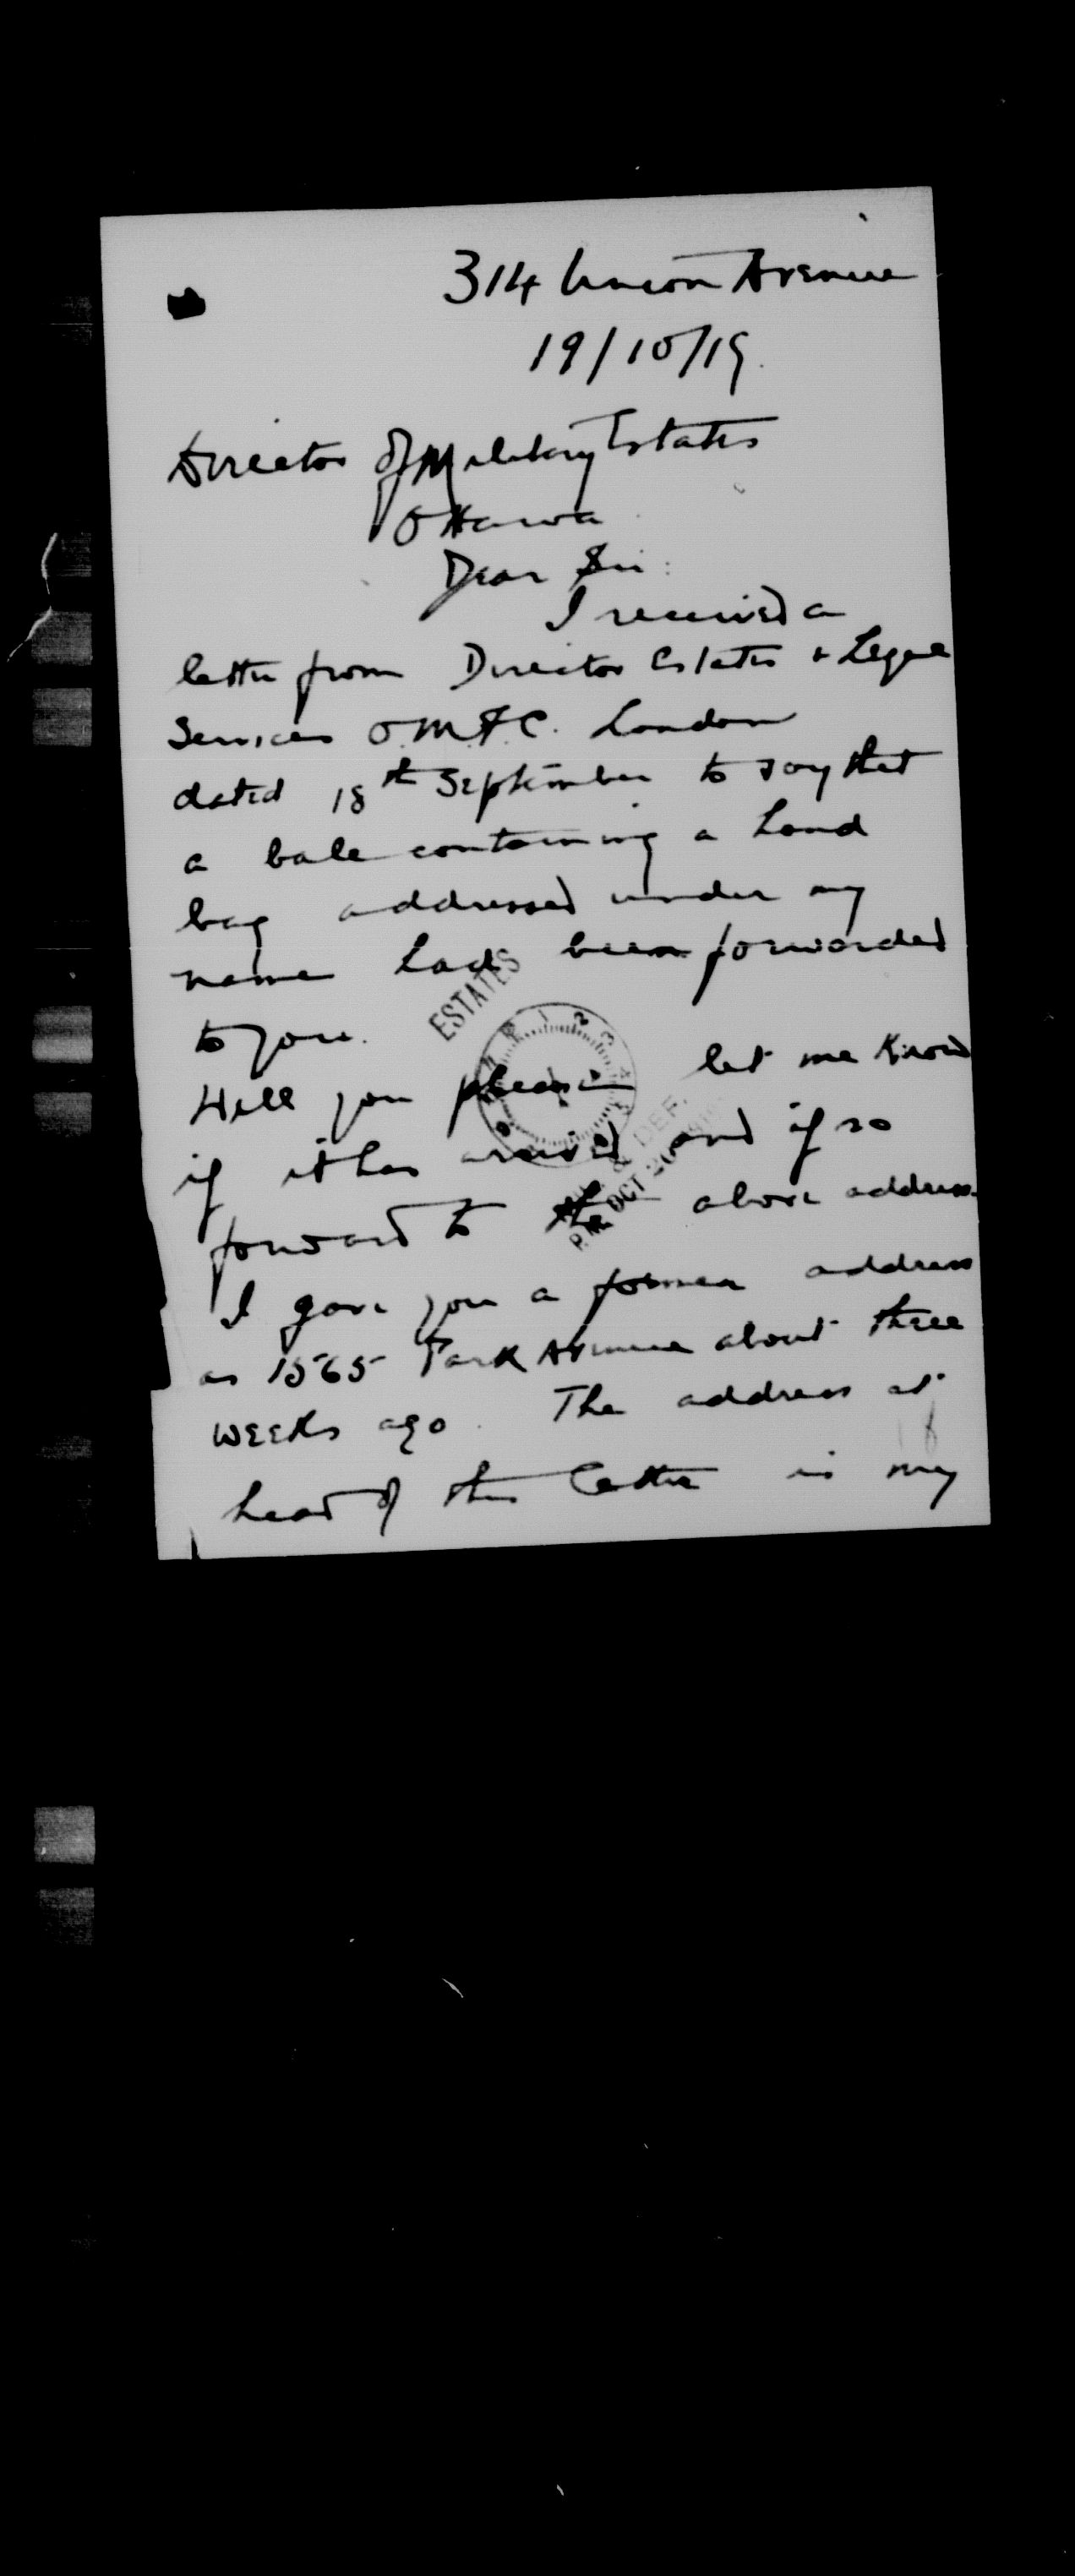 314 Union Avenue
19/10/19.
Director of Military Estates
Ottawa
Dear Sir:
I received a
letter from Director Estates & Legal
Services O.M.F.C. London
dated 18th September to say that
a bale containing a hand
bag addressed under my
name had been forwarded
to you.
ESTATES
Will you please let me know
if it has arrived and if so
OCT 20
forward to the above address.
I gave you a former address
as 1565 Park Avenue about three
weeks ago. The address at
head of this letter is my